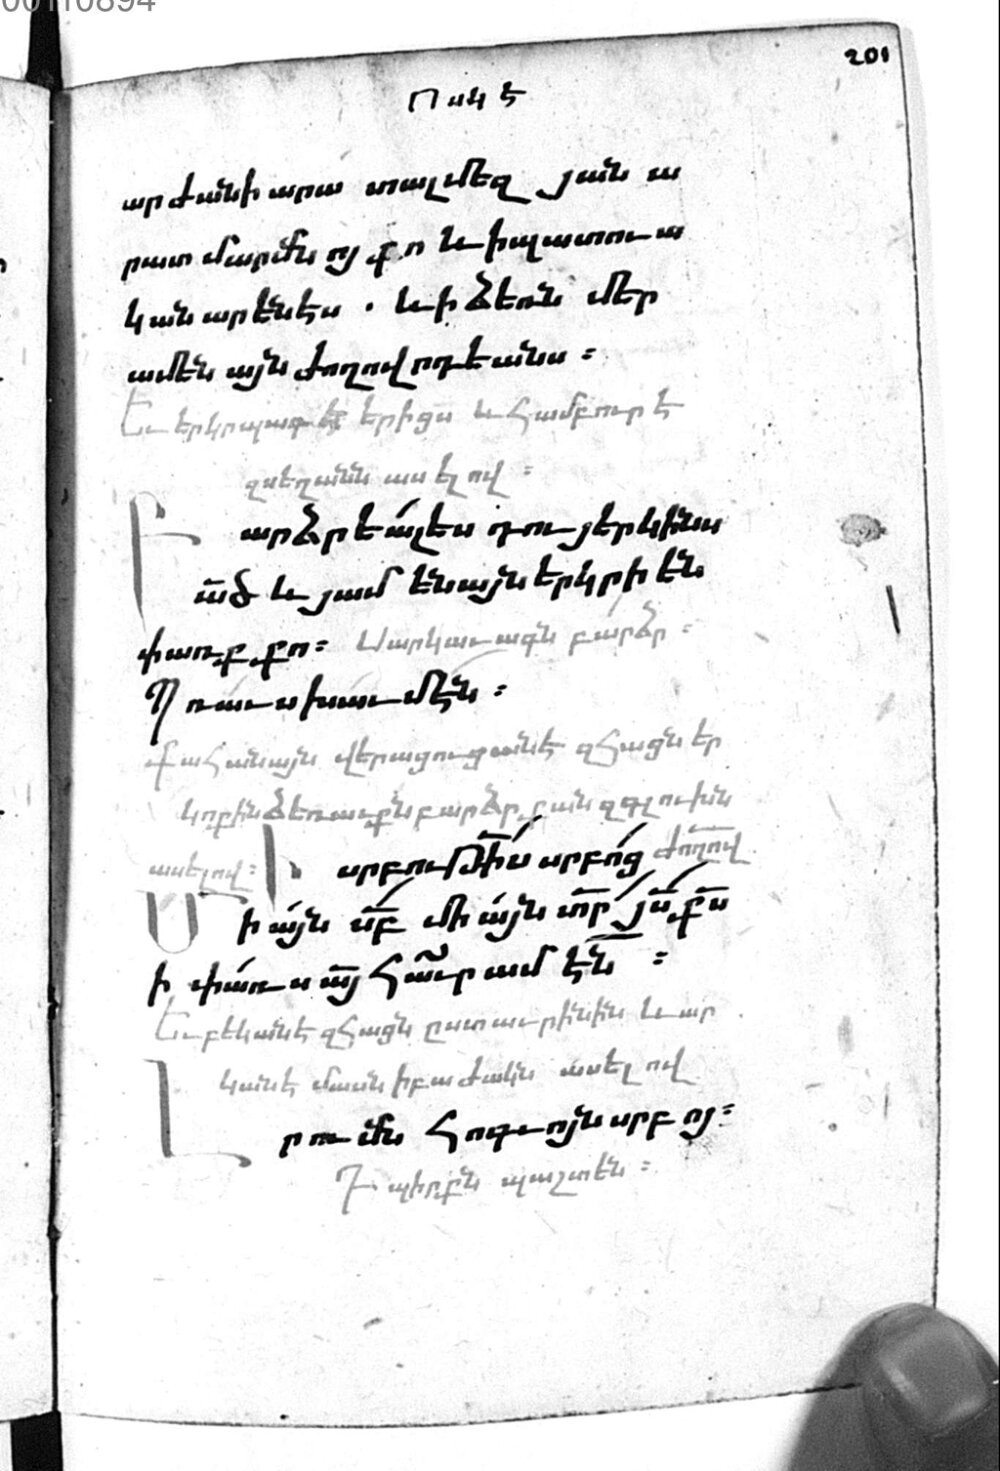 00110894
201
արժանի արա տալ մեզ յան ա
րատ մարմնոյ քո և ի պատուա
կան արէնէս . և ի ձեռն մեր
ամենայն ժողովրդեանս ։
Եւ երկրպագէ երիցս և համբուրէ
զսեղանն ասելով ։
Բ արձրեալես դու յերկինս
ած և յամենայն երկրի են
փառք քո ։ Սարկաւագն բարձր ։
Պռաւսխաւմէն ։
Քահանայն վերացուցանէ զհացն եր
կոքին ձեռաւքն բարձր քան զգլուխն
ասելով ։ Ի սրբութիս սրբոց ժողով
Միայն սբ միայն տր յս քս
ի փառս այ հաւր ամէն ։
Եւ բեկանէ զհացն ըստ աւրինին և ար
կանէ մասն ի բաժակն ասելով
Լրումն հոգւոյն սրբոյ ։
Դպիրքն պաշտեն ։